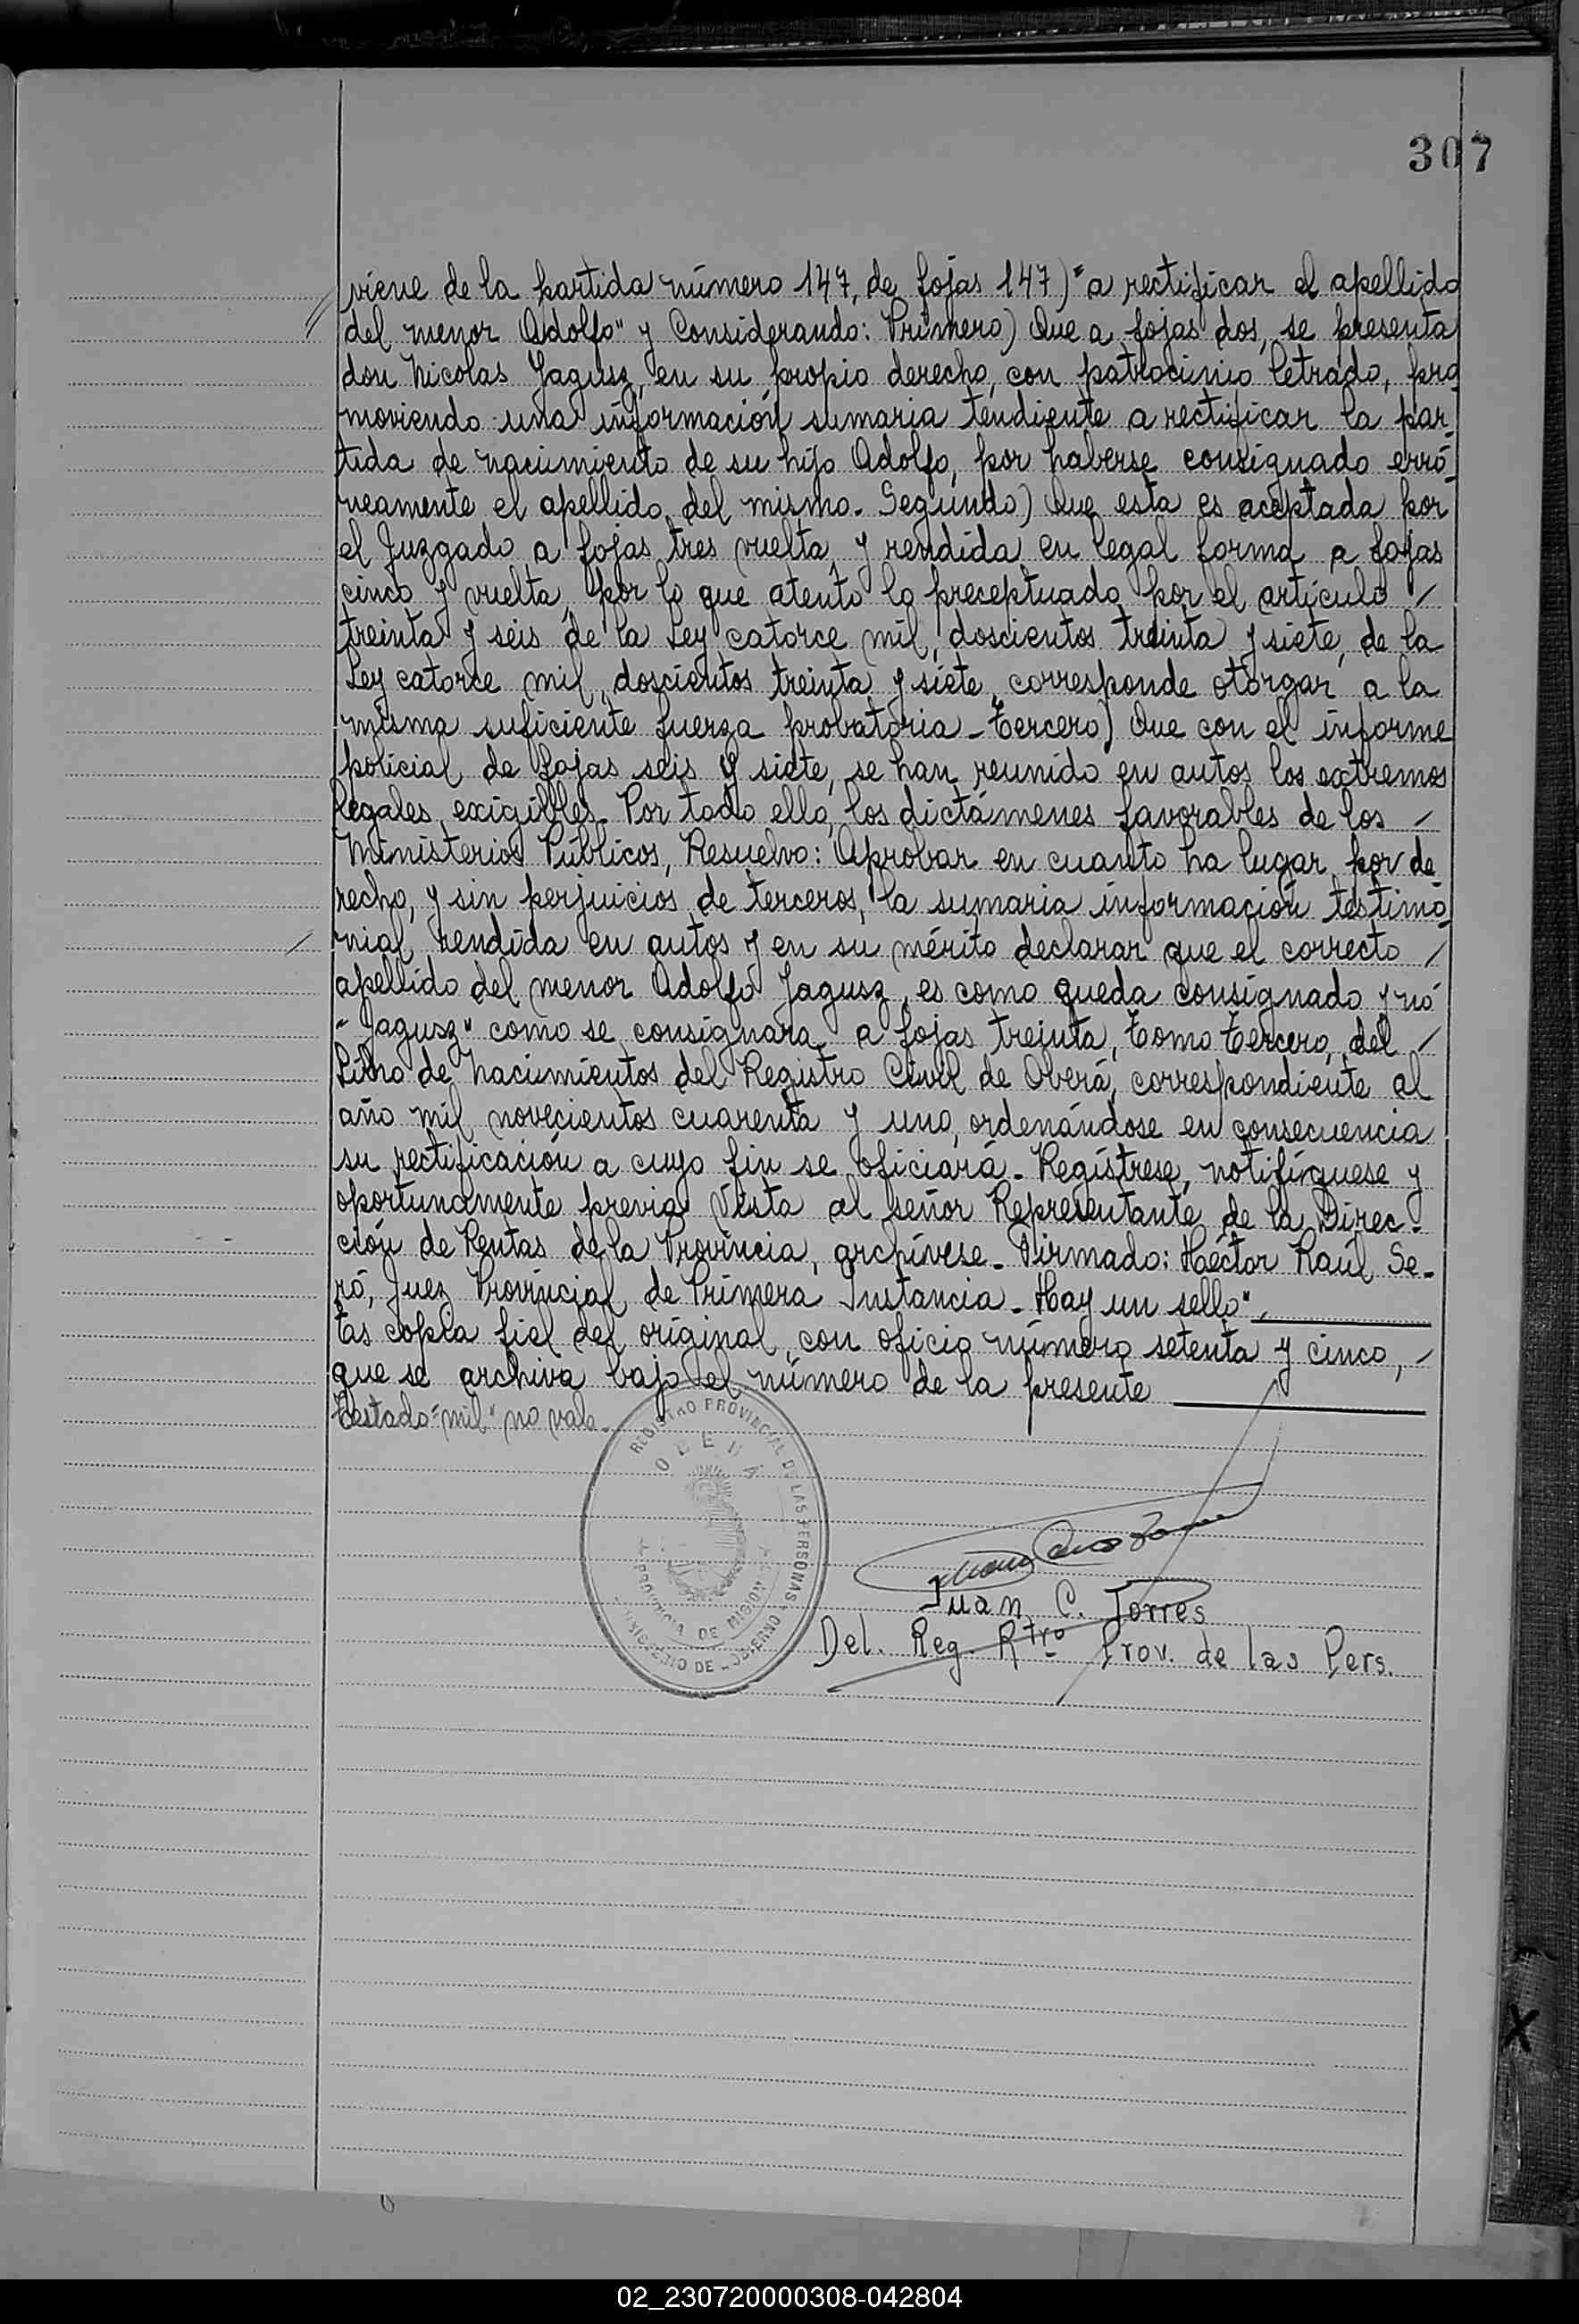 307
viene de la partida número 147, de fojas 147) "a rectificar el apellido
del menor Adolfo" y Considerando: Primero) Que a fojas dos, se presenta
don Nicolas Jagusz, en su propio derecho, con patrocinio letrado, pro
moviendo una información sumaria tendiente a rectificar la par-
tida de nacimiento de su hijo Adolfo, por haberse consignado erró-
neamente el apellido del mismo. Segundo) Que esta es aceptada por
el Juzgado a fojas tres vuelta, y rendida en legal forma a fojas
cinco y vuelta, por lo que atento lo preceptuado por el artículo /
treinta y seis de la Ley catorce mil, doscientos treinta y siete, de la
Ley catorce mil, doscientos treinta y siete, corresponde otorgar a la
misma suficiente fuerza probatoria - Tercero) Que con el informe
policial de fojas seis y siete, se han reunido en autos los extremos
legales exigibles. Por todo ello, los dictámenes favorables de los /
Ministerios Públicos, Resuelvo: Aprobar en cuanto ha lugar por de
recho, y sin perjuicios de terceros, la sumaria información testimo-
/ nial rendida en autos y en su mérito declarar que el correcto /
apellido del menor Adolfo Jagusz, es como queda consignado y nó
"Jagusz" como se consignara a fojas treinta, Tomo Tercero, del /
Libro de Nacimientos del Registro Civil de Oberá, correspondiente al
año mil novecientos cuarenta y uno, ordenándose en consecuencia
su rectificación a cuyo fin se oficiará. Regístrese, notifíquese y
oportunamente previa Vista al señor Representante de la Direc-
ción de Rentas de la Provincia, archívese. Firmado: Héctor Raúl Se-
ró, Juez Provincial de Primera Instancia. Hay un sello".
Es copia fiel del original, con oficio número setenta y cinco, /
que se archiva bajo el número de la presente
Testado="mil" no vale.
REGISTRO PROVINCIAL DE LAS PERSONAS
OBERÁ
PROVINCIA DE MISIONES
MINISTERIO DE GOBIERNO
Juan C. Torres
Del. Reg. Rtro Prov. de las Pers.
X
02_230720000308-042804